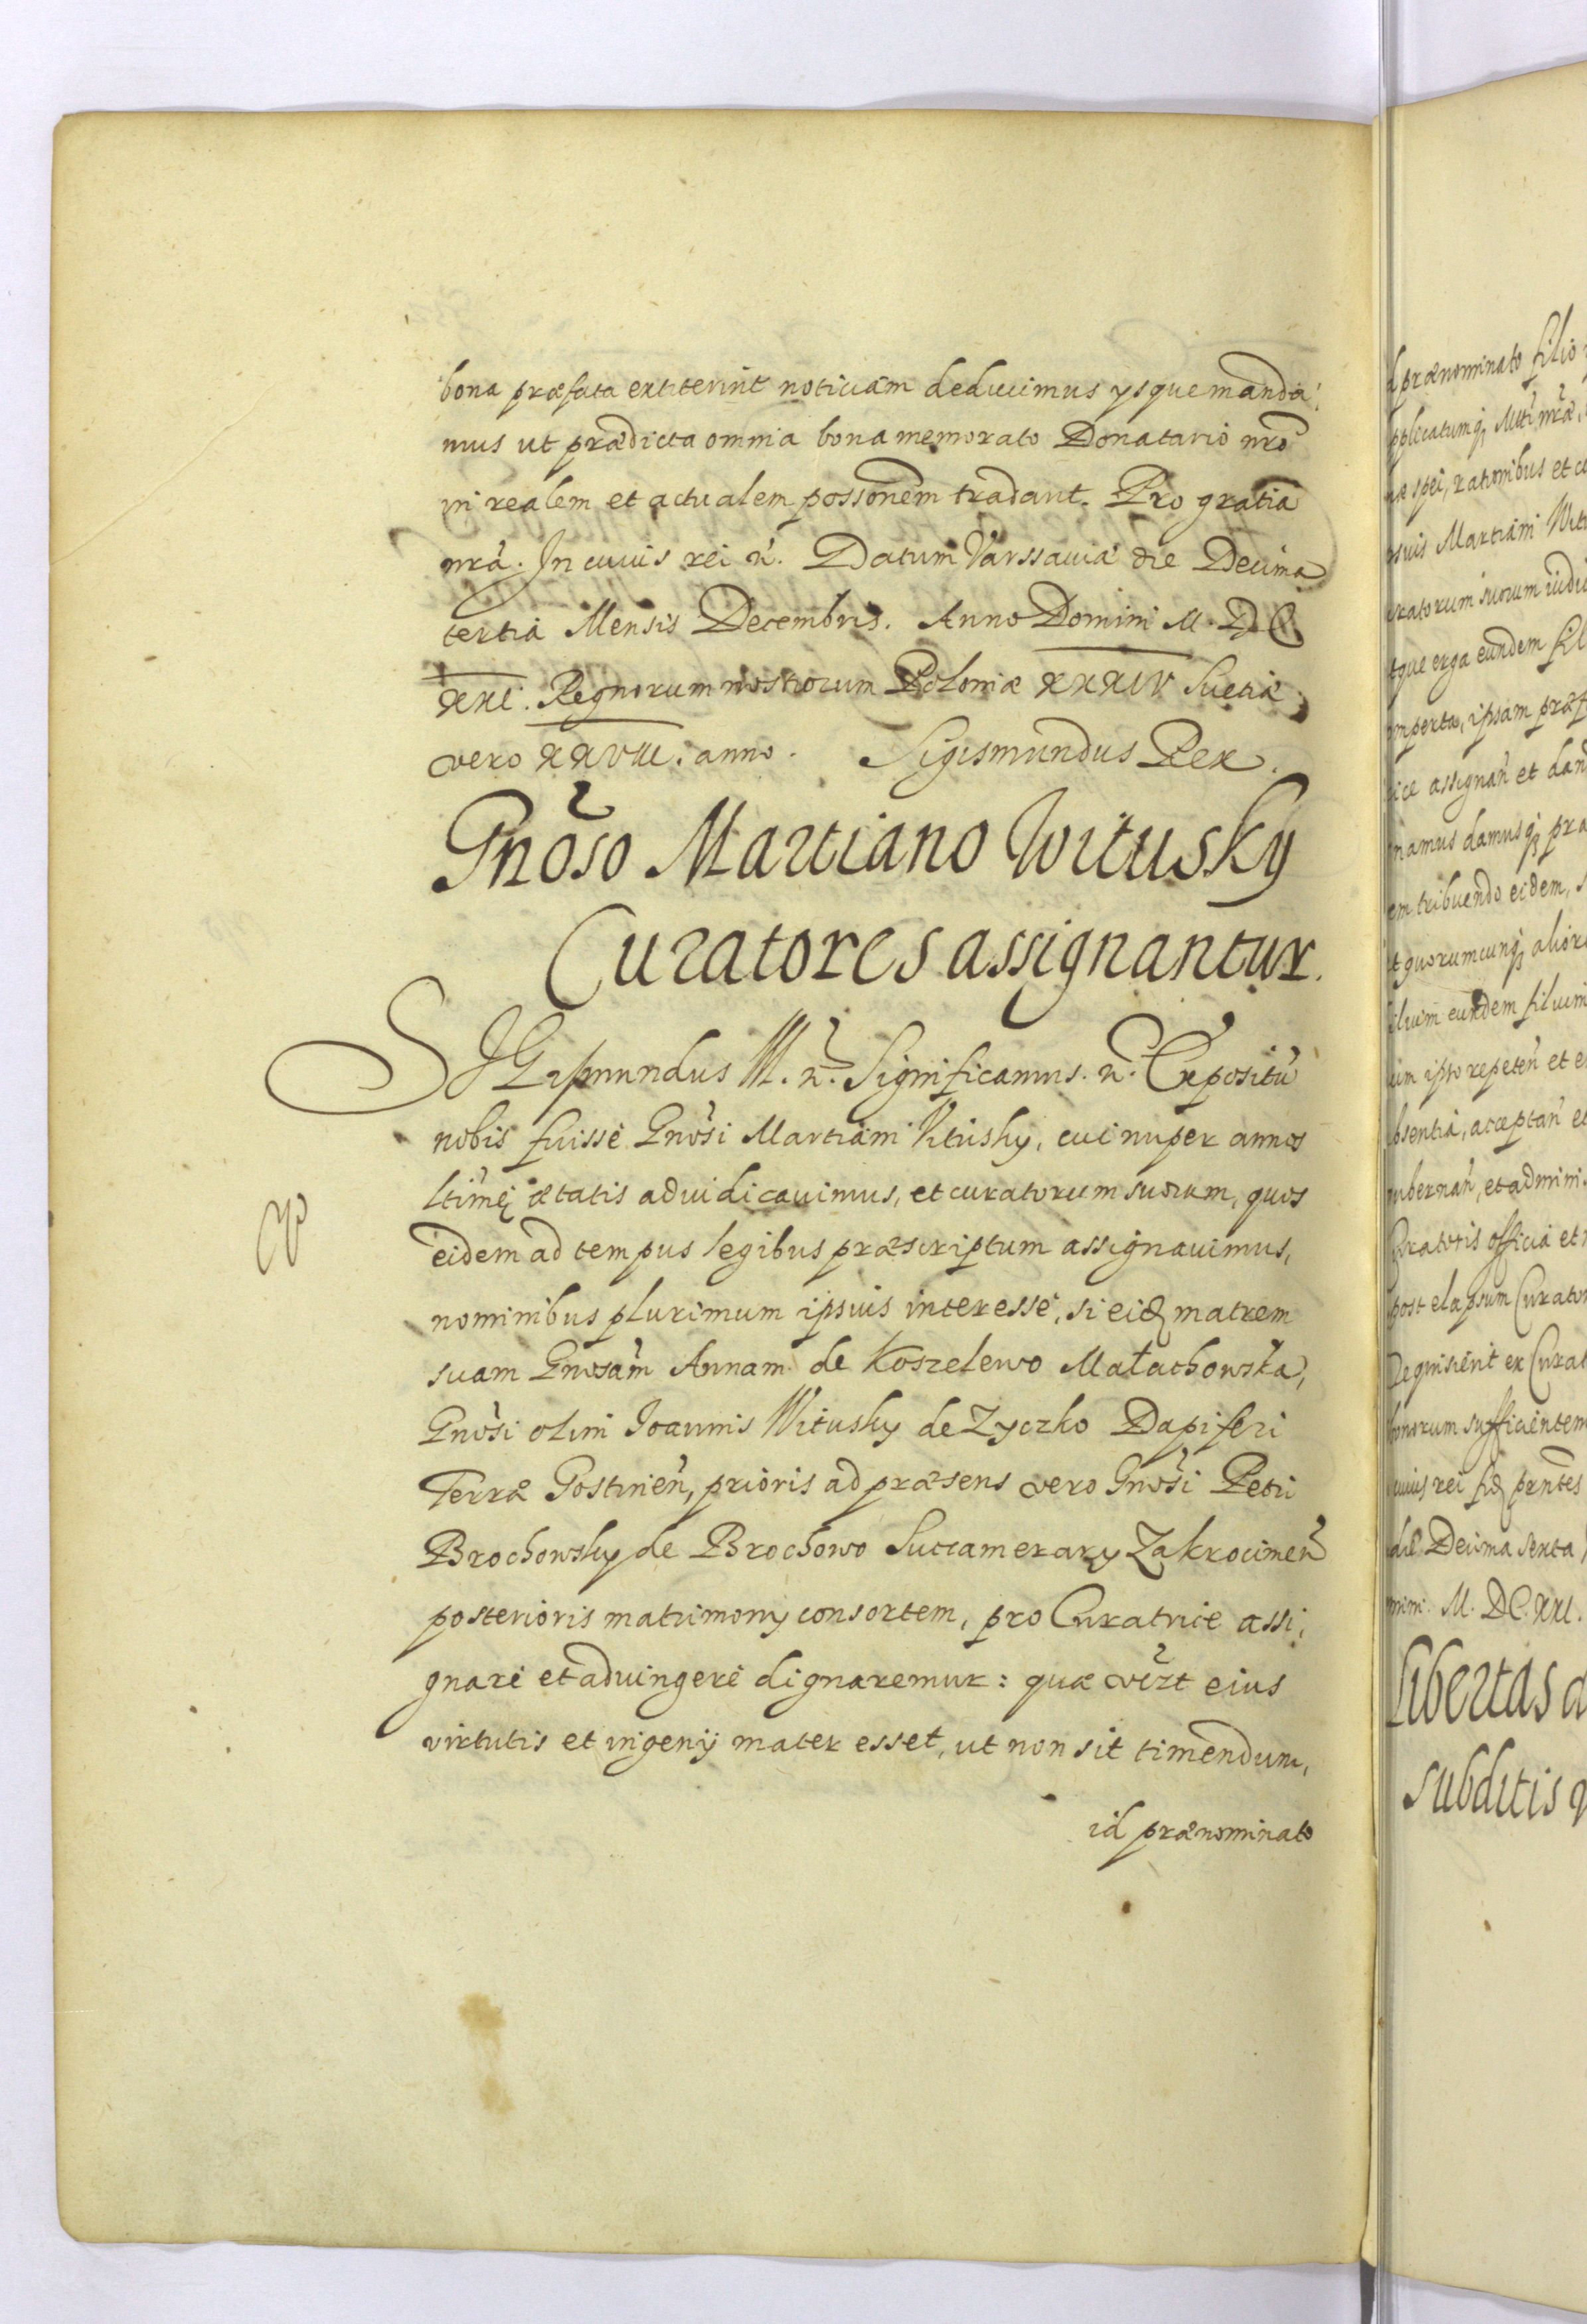 bona præfata extiterint notitiam deducimus ysque manda
mus ut prædicta omnia bona memorato Donatario nrõ
in realem et actualem possonem tradant. Pro gratia
nrã. In cuius rei ñ. Datum Varssauiæ die Decima
tertia Mensis Decembris. Anno Domini M. D C
XXI. Regnorum nostrorum Poloniæ XXXIV Suetiæ
vero XXVIII. anno. Sigismundus Rex.
Gnõso Martiano Witusky
Curatores assignantur.
SIGismundus III. ñ. Significamus. ñ. Expositũ
nobis fuisse Gnõsi Martiani Vitusky, cui nuper annos
ltimę ætatis adiudicauimus, et curatorum suorum, quos
eidem ad tempus legibus præscriptum assignauimus,
nominibus plurimum ipsius interesse, si eidẽ matrem
suam Gnosam Annam de Koszelewo Małachowska,
Gnõsi olim Ioannis Witusky de Zyczko Dapiferi
Terræ Gostinieñ, prioris ad præsens vero Gnõsi Petri
Brochowsky de Brochowo Succamerary Zakrocimeñ
posterioris matrimony consortem, pro Curatrice assi,
gnare et adiungere dignaremur: quæ vẽrt eius
virtutis et ingenij mater esset, ut non sit timendum,
id prænominato
d prænominato filio
pplicatumq Mti nræ,
næ spei, rationibus et co
psius Martiani Wit
uratorum suorum iudic
tque erga eundem fil
omperta, ipsam præf
rice assignañ et dand
gnamus damusq pra
em tribuendo eidem, s
t quorumcunq alior
ilium eundem filium
um ipso repeteñ et e
bsentia, acceptañ et
ubernañ, et adminis
Curatoris officia et
post elapsum Curator
Requisierit ex Curat
bonorum sufficientem
cuius rei fidẽ prñtes
die Decima sexta,
mini. M. DC. XXI.
Libertas a
subditis